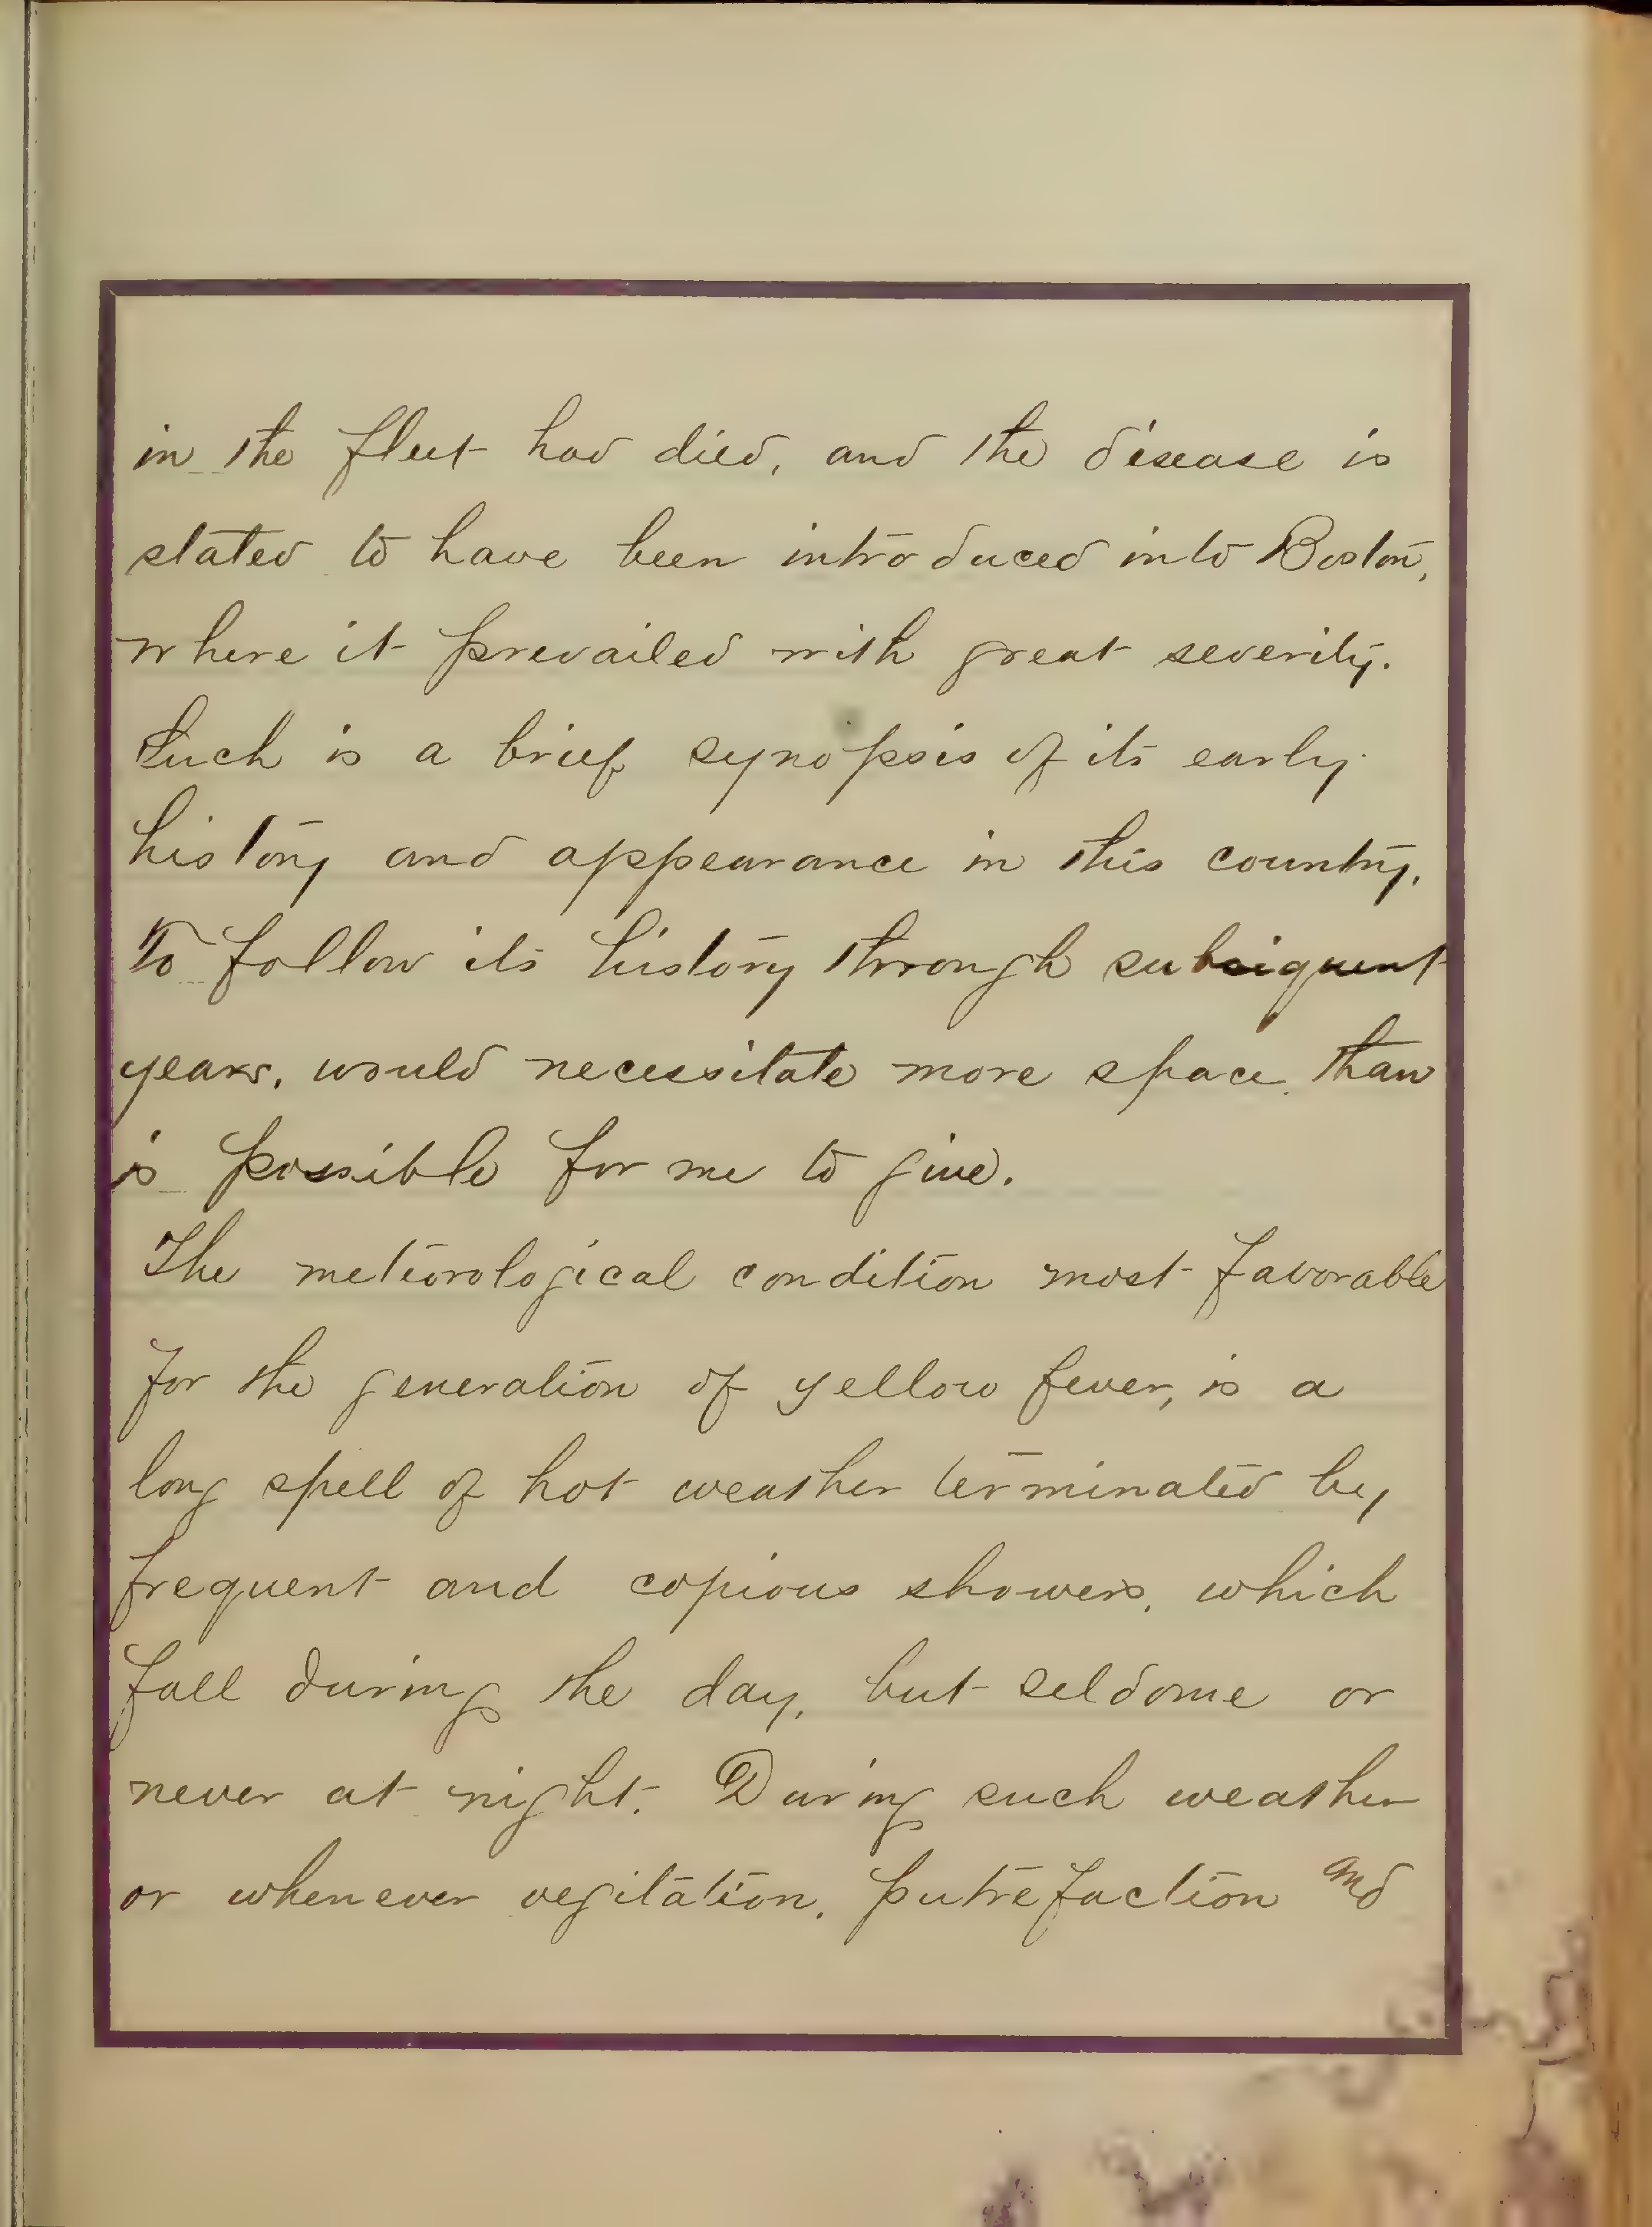 in the fleet had died, and the disease is
stated to have been introduced into Boston,
where it prevailed with great severity.
Such is a brief synopsis of its early
history and appearance in this country.
To follow its history through subsiquent
years, would necessitate more space than
is possible for me to give.
The meteorological condition most favorable
for the generation of yellow fever, is a
long spell of hot weather terminated by
frequent and copious showers, which
fall during the day, but seldome or
never at night. During such weather
or whenever vegitation, putrefaction and